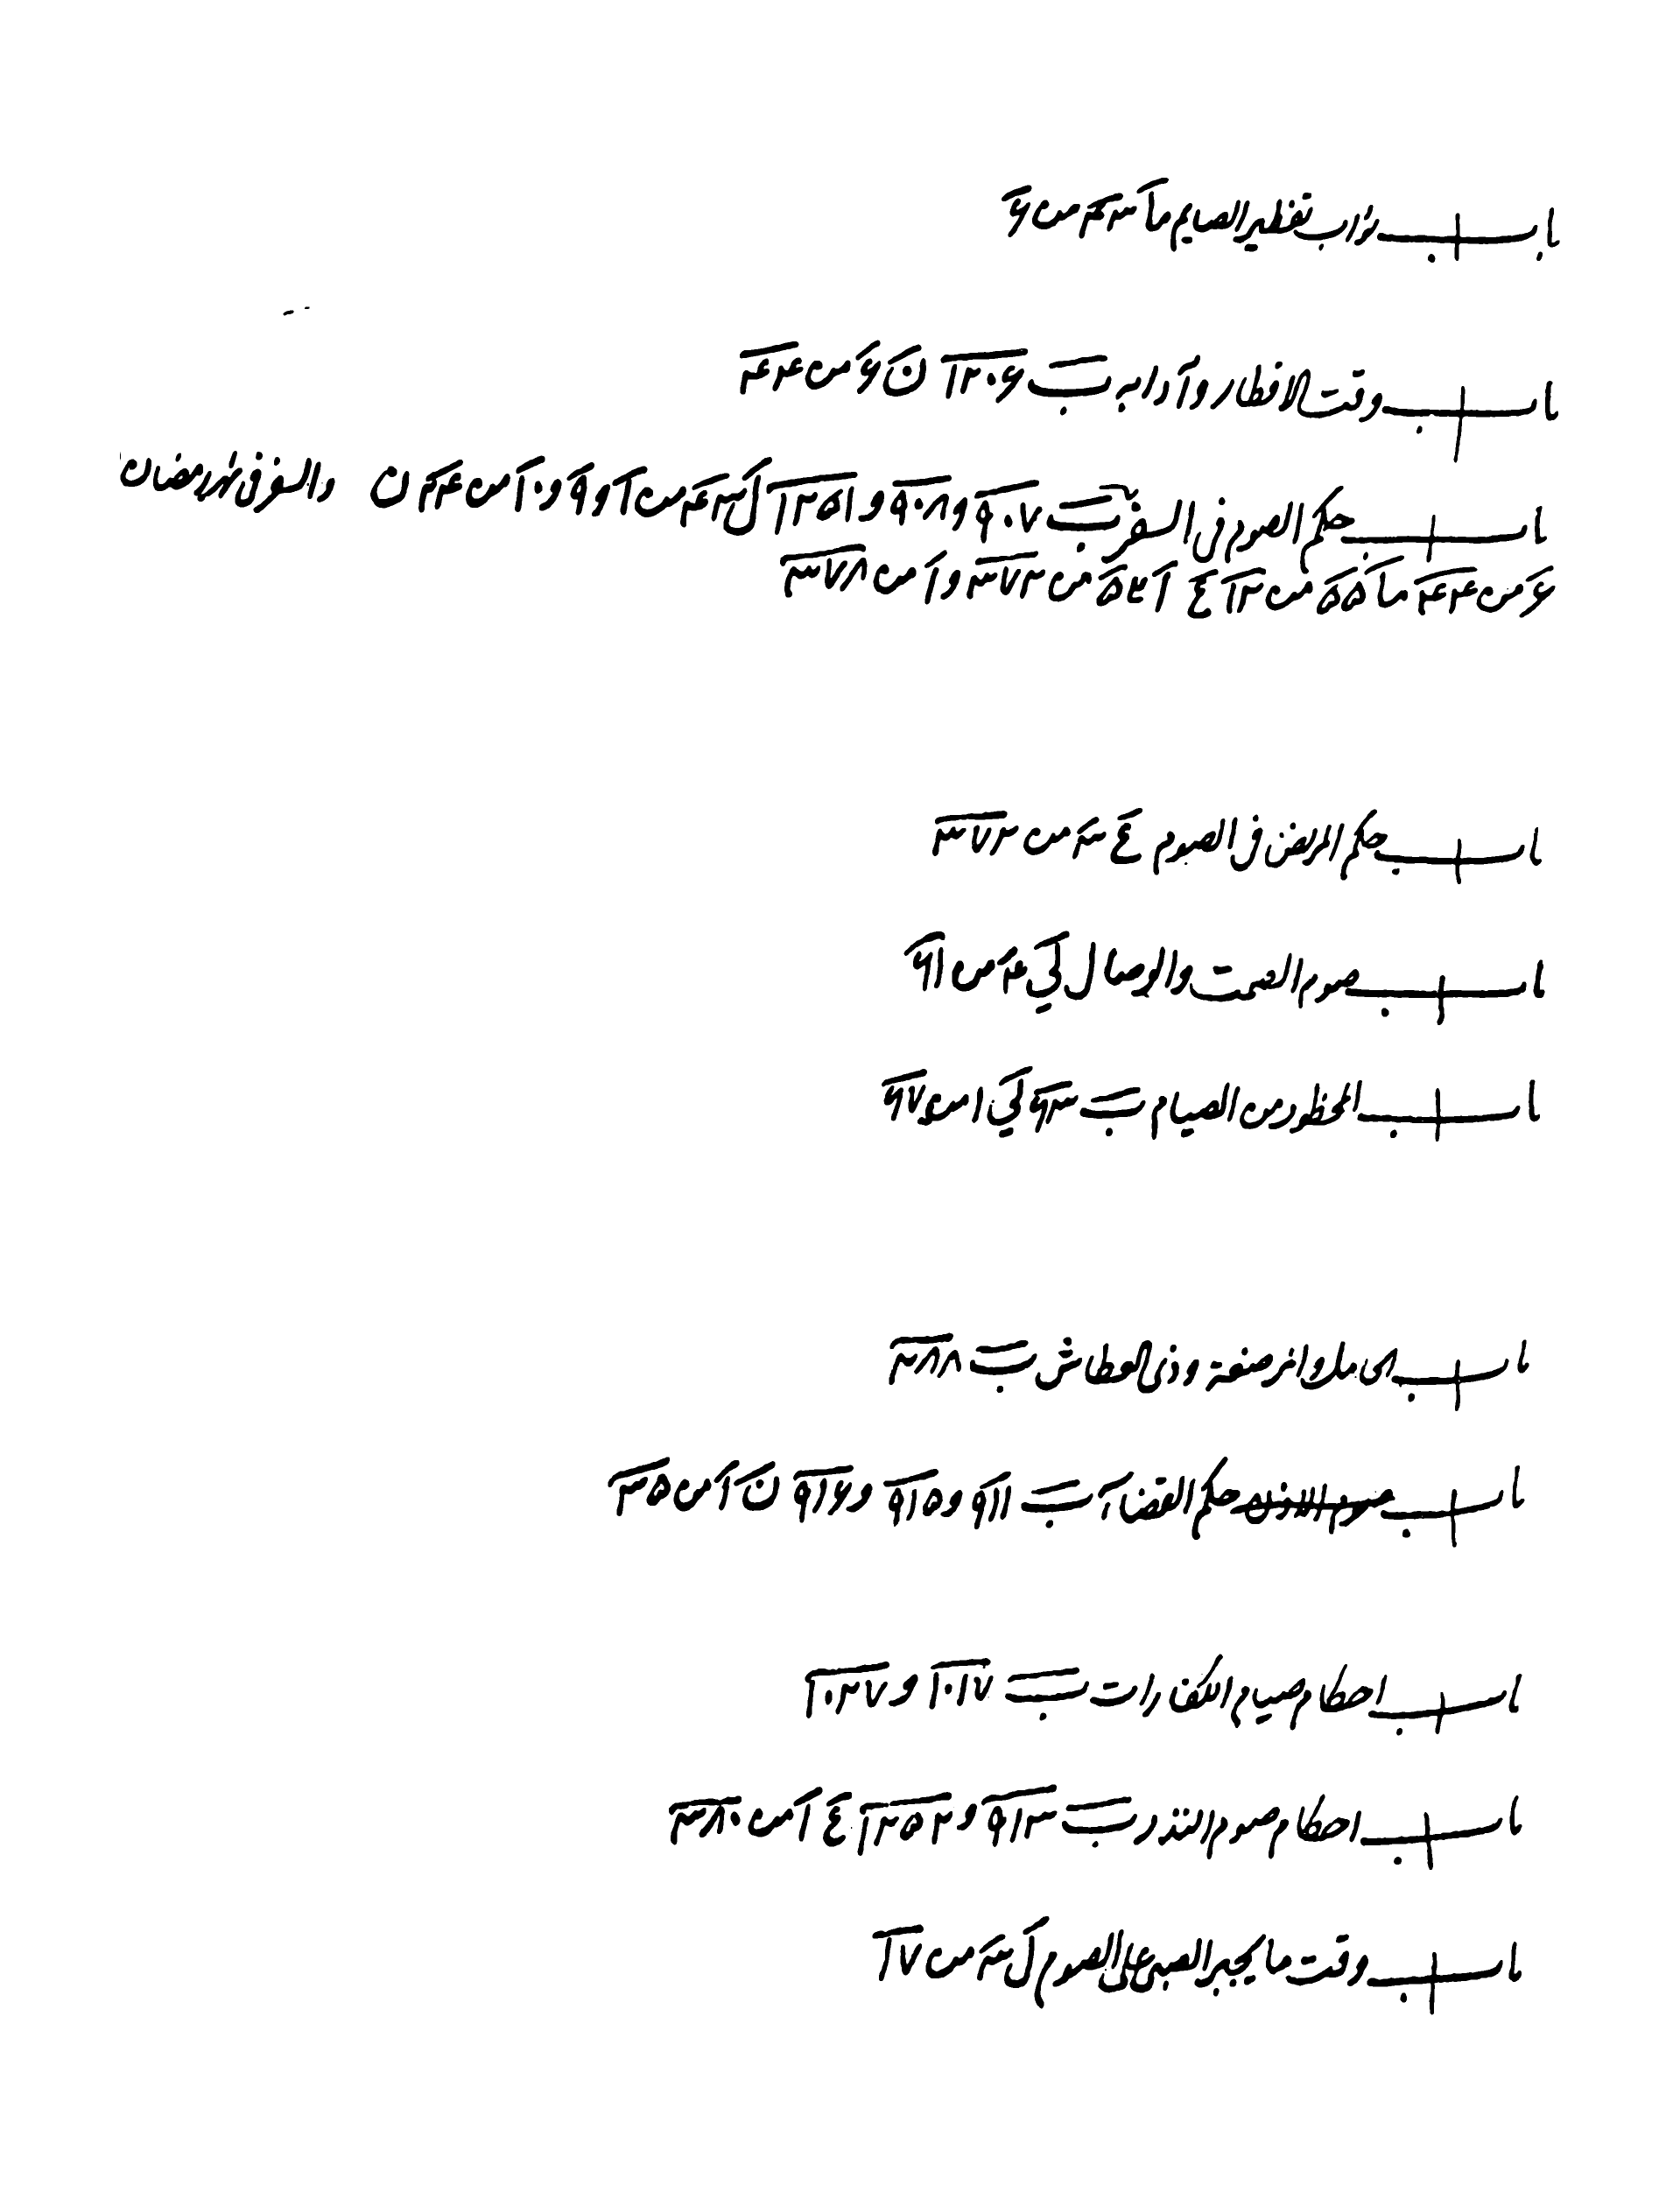 باب ثواب تفطير الصايم ما ٣ من ٦
باب وقت الافطار وآدابه ب ١٢٠٦ ن ٦ من ٤٤
باب حكم الصوم في السفر ب ٩٠٧ و ٩٠٨ و ١٢٥١ ل من ١ و ٩ و ١٠ من ٤٤ ن والسفر في شهر رمضان
٦ من ٤٤ ما ٥٥ من ١٢ ع ٥ من ٣٧٢ و ١ من ٣٧٨
باب حكم المريض في الصوم ع ٣ من ٣٧٢
باب صوم الصمت والوصال لي ٤ من ٦١
باب المحظور من الصيام ب ٦٣ لي ١ من ٦٧
باب الحامل والمرضعة وذى العطاش ب ٨٨٣
باب حكم القضاء ب ٩١١ و ٩١٥ و ٩١٦ ن ١ من ٣٥
باب احكام صيام الكفارات ب ١٠١٧ و ١٠٢٧
باب احكام صوم النذر ب ٩١٣ و ١٢٥٢ ع ١ من ٣٨٠
باب وقت ما يجبر الصبى على الصوم ل ٣ من ١٧